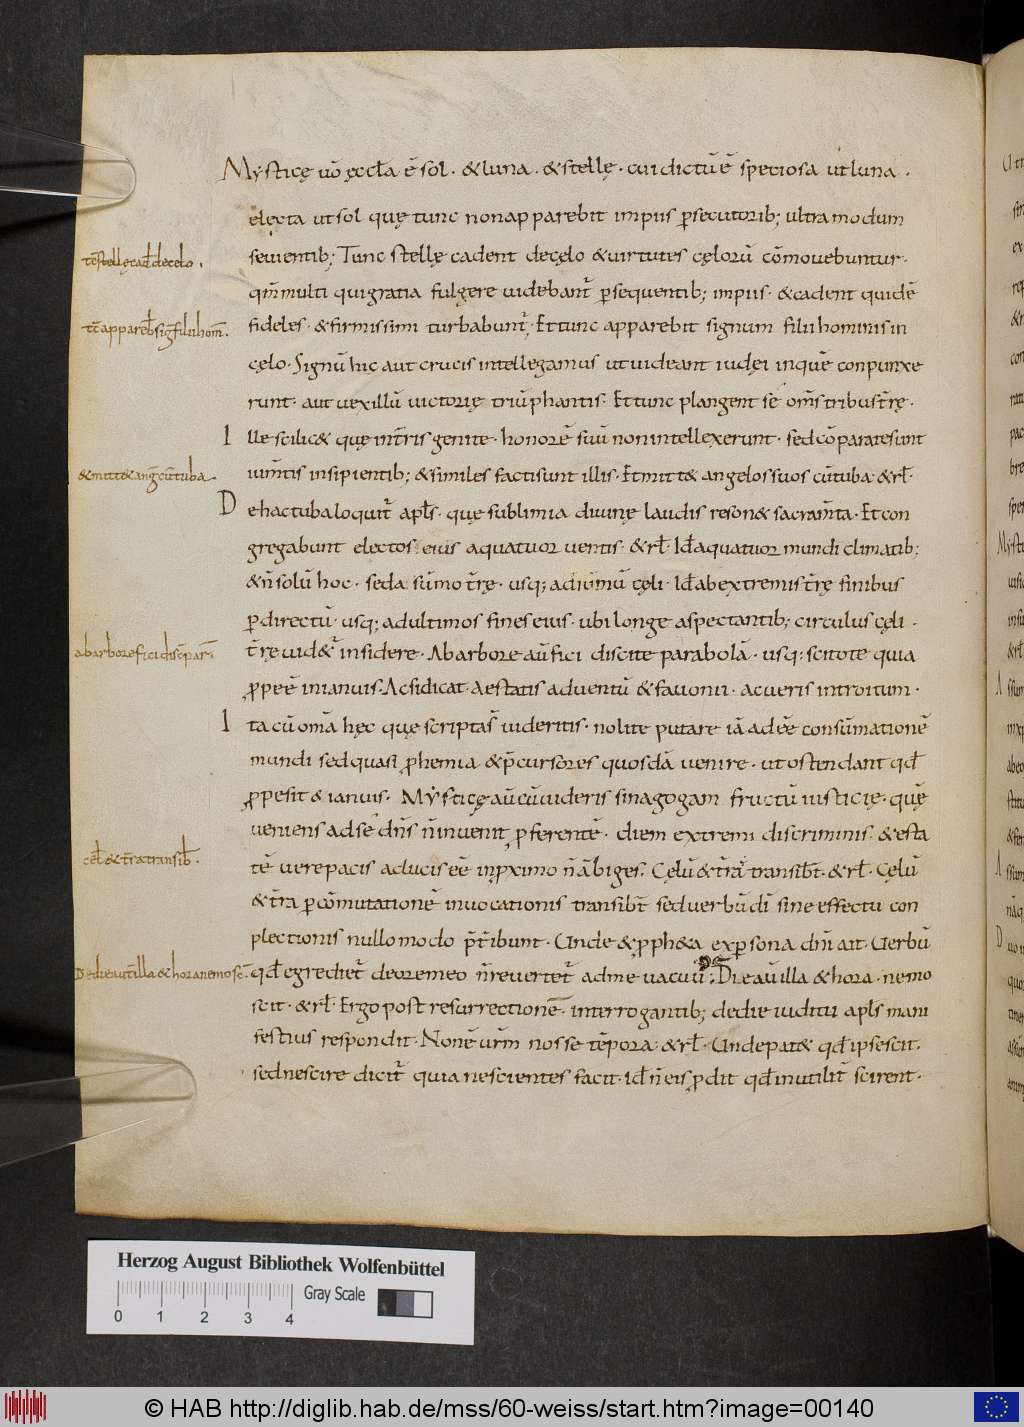 Mysticę uō ęccła ē sol · & luna · & stellę · cui dictū ē speciosa ut luna ·
elęcta ut sol quę tunc non apparebit impiis ꝑsecutorib; ultra modum
seuientib; Tunc stellę cadent de cęlo & uirtutes cęlorū cōmouebuntur ·
qm̄ multi qui gratia fulgere uidebant̄ ꝑsequentib; impiis · & cadent quidē
fideles · & firmissimi turbabunt̄ · Et tunc apparebit signum filii hominis in
cęlo · Signū hic aut crucis intellegamus ut uideant iudęi in quē conpunxe
runt · aut uexillū uictorię triūphantis · Et tunc plangent se om̄s tribus t̄rę ·
Ille scilic& quę in t̄ris genite · honorē suū non intellexerunt · sed cōparate sunt
ium̄tis insipientib; & similes facti sunt illis · Et mitt& angelos suos cū tuba · & rł ·
De hac tuba loquit̄ apłs · que sublimia diuinę laudis reson& sacram̄ta · Et con
gregabunt electos eius a quatuor uentis · & rł · Id ē a quatuor mundi climatib;
& n̄ solū hoc · sed a sūmo t̄rę · usq; ad iūmū cęli · Id ē ab extremis t̄rę finibus
ꝑ directū · usq; ad ultimos fines eius · ubi longe aspectantib; circulus cęli ·
t̄rę uid&̄ insidere · Ab arbore aū fici discite parabolā · usq; scitote quia
ꝓpe ē in ianuis · Ac si dicat · aestatis aduentū & fauonii · ac ueris introitum ·
Ita cū om̄a hęc que scripta s̄ uideritis · nolite putare iā adēe consūmationē
mundi sed quasi ꝓhemia & p̄cursores quosdā uenire · ut ostendant qđ
ꝓpe sit & ianuis · Mysticę aū cū uideris sinagogam fructū iusticię · quę̄
ueniens ad sē dn̄s n̄ inuenit ꝓferentē · diem extremi discriminis · & esta
tē uere pacis aducis eē in ꝓximo n̄ ābiges · Cęlū & t̄rā transib̄t · & rł · Cęlū
& t̄ra ꝑ cōmutationē inuocationis transib̄t sed uerbū dī sine effectu con
plectionis nullo modo p̄t̄ibunt · Unde & ꝓph&a ex ꝑsona dn̄i ait · Uerbū
qđ egrediet̄ de ore meo n̄ reuertet̄ ad me uacuū · De die aū illa & hora · nemo
scit · & rł · Ergo post resurrectionē · interrogantib; de die iuditii apłs mani
festius respondit · Non ē ūrm nosse tēpora · & rł · Unde pat& qđ ipse scit ·
sed nescire dicit̄ quia nescientes facit · Id n̄ eis ꝓdit qđ inutilit̄ scirent ·
tc̄ stellę cad̄ de celo ·
tc̄ appareb̄ siḡ filii hom̄ ·
& mitt& ang̃ cū tuba ·
ab arbore fici disc̄ par̄ ·
cel̄ & t̄ra transib̄ ·
De die aut̄ illa & hora nemo sc̄ ·
Herzog August Bibliothek Wolfenbüttel
Gray Scale
0 1 2 3 4
© HAB http://diglib.hab.de/mss/60-weiss/start.htm?image=00140